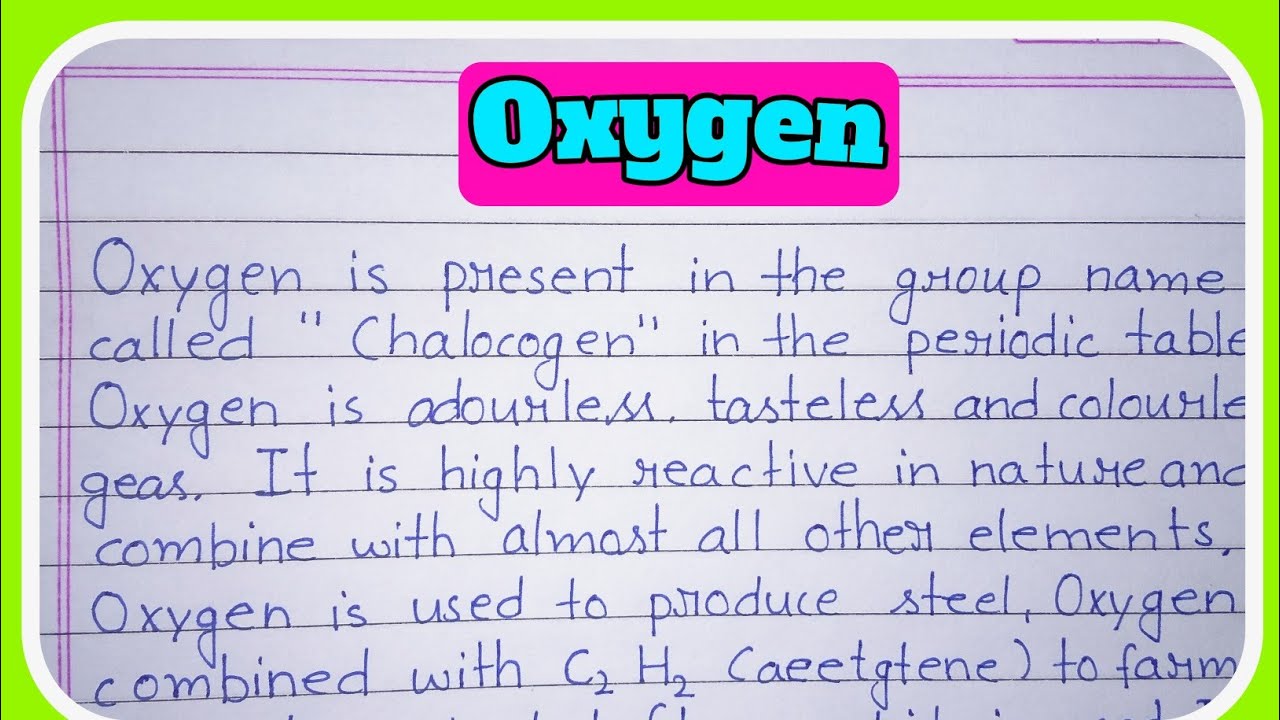 Oxygen
Oxygen is present in the group name
called "Chalocogen" in the periodic table
Oxygen is adourless. tasteless and colourle
geas. It is highly reactive in nature and
combine with almost all other elements.
Oxygen is used to produce steel, Oxygen
combined with C₂ H₂ (aeetgtene) to farm